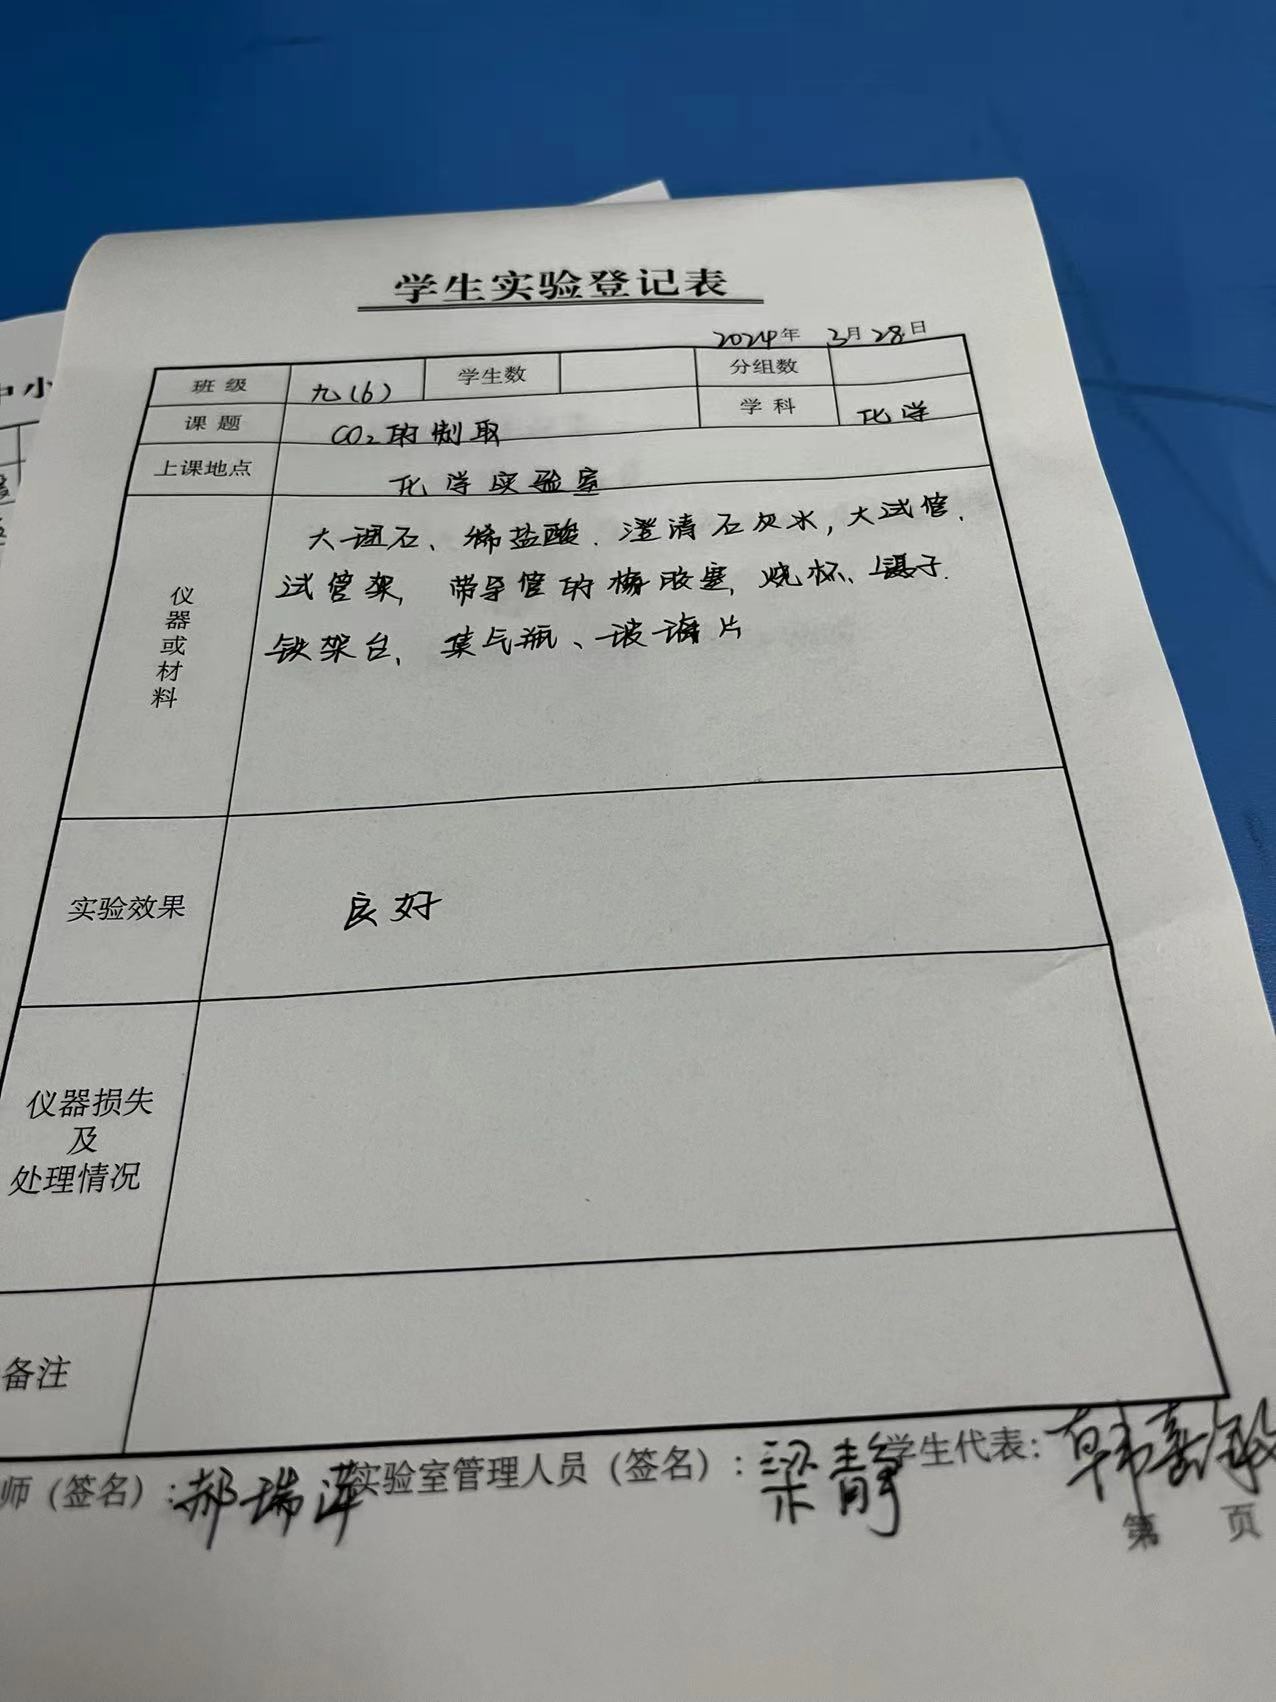 学生实验登记表
2024年 3月28日
班级 九(6) 学生数 分组数
课题 CO₂的制取 学科 化学
上课地点 化学实验室
仪器或材料
大理石、稀盐酸、澄清石灰水,大试管、
试管架, 带导管的橡胶塞, 烧杯、镊子、
铁架台, 集气瓶、玻璃片
实验效果 良好
仪器损失
及
处理情况
备注
师(签名):郝瑞萍 实验室管理人员(签名):梁静 学生代表:韩嘉敏
第 页
中小